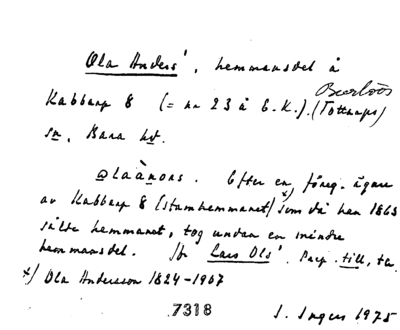 Ola Anders', hemmansdel å
Burlöv
Kabbarp 8 (= nr 23 å E.K.). (Tottarps)
sn, Bara hd.
ɷlaànərs. Efter en föreg. ägare
av Kabbarp 8 (stamhemmanet) x) som då han 1863
sålde hemmanet, tog undan en mindre
hemmansdel. Jfr Lars Ols'. Parp. till, tu
x) Ola Andersson 1824-1907
7318 S. Ingers 1975